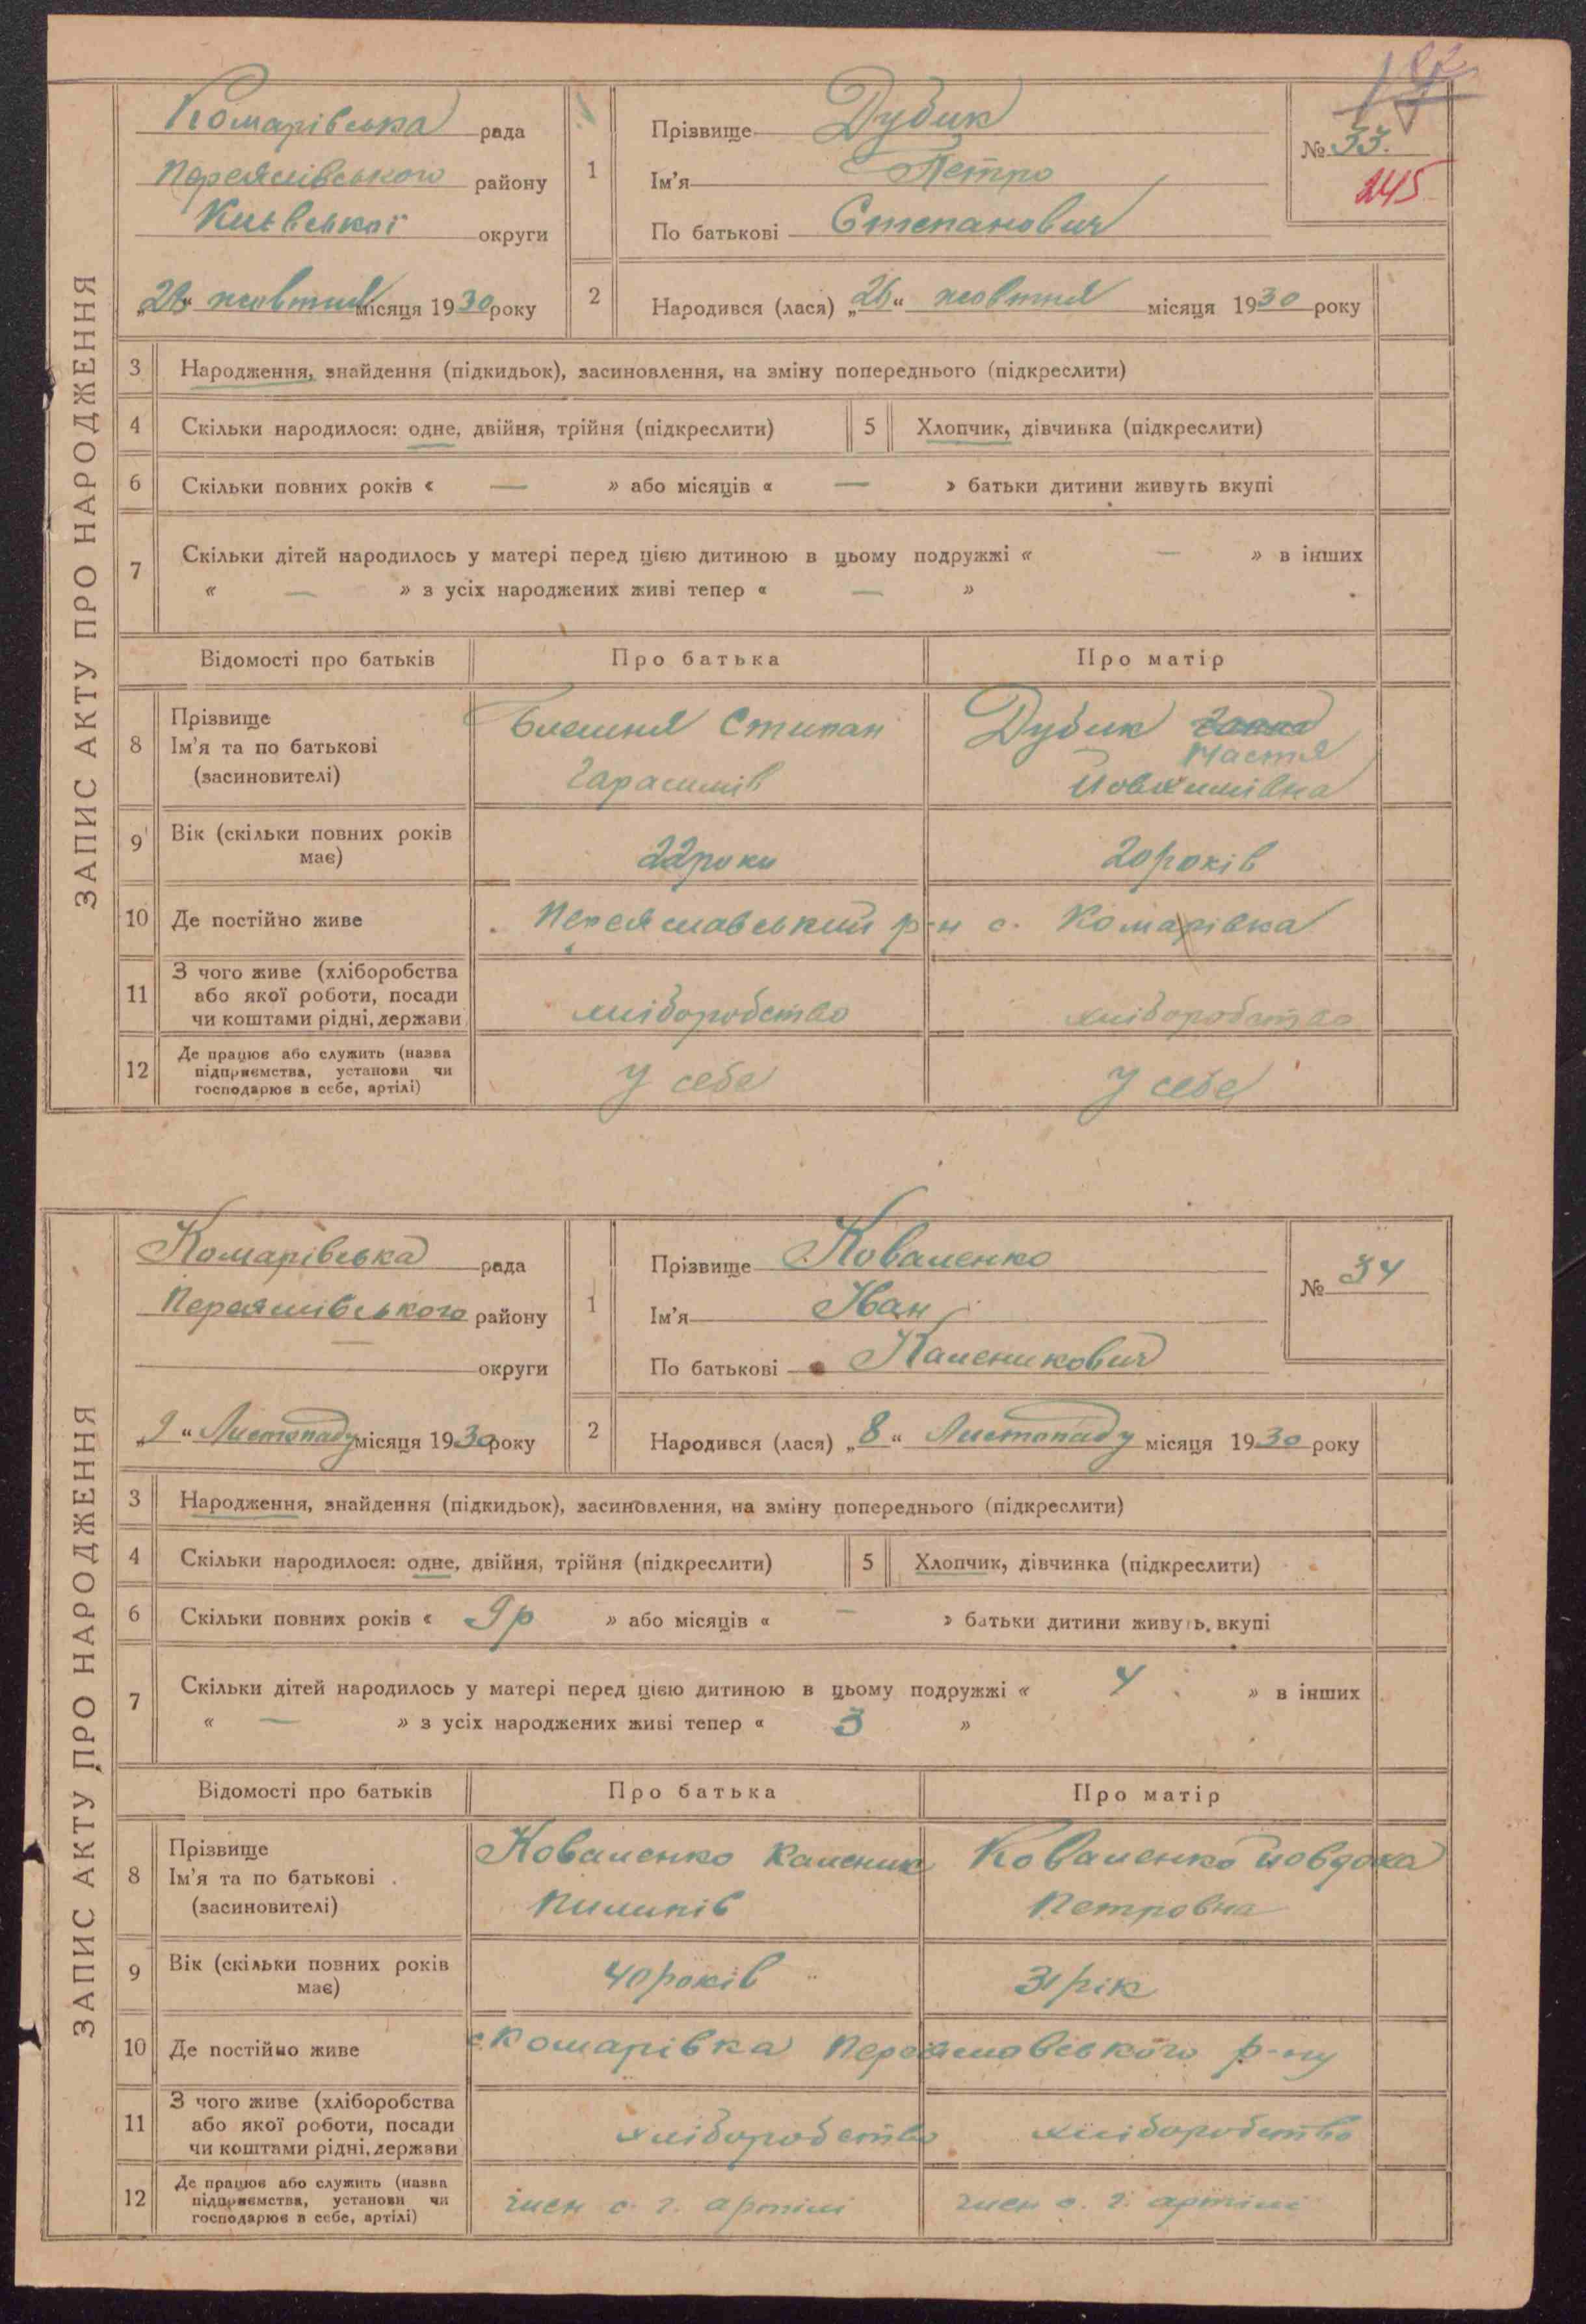 ЗАПИС АКТУ ПРО НАРОДЖЕННЯ
Комарівська рада
Переяслівського району
Київської округи
„28“ жовтня місяця 1930 року
1
Прізвище Дубик
Ім'я Петро
По батькові Степанович
№ 33.
245
2
Народився (лася) „26“ жовтня місяця 1930 року
3 Народження, знайдення (підкидьок), засиновлення, на зміну попереднього (підкреслити)
4 Скільки народилося: одне, двійня, трійня (підкреслити) 5 Хлопчик, дівчинка (підкреслити)
6 Скільки повних років « — » або місяців « — » батьки дитини живуть вкупі
7 Скільки дітей народилось у матері перед цією дитиною в цьому подружжі « — » в інших
« — » з усіх народжених живі тепер « — »
Відомості про батьків Про батька Про матір
8 Прізвище
Ім'я та по батькові
(засиновителі)
Степан
Гарасимів
Дубик
Настя
Йовхимівна
9 Вік (скільки повних років має) 22 роки 20 років
10 Де постійно живе Переяславський р-н с. Комарівка
11 З чого живе (хліборобства
або якої роботи, посади
чи коштами рідні, держави
хліборобство хліборобство
12 Де працює або служить (назва
підприємства, установи чи
господарює в себе, артілі)
У себе У себе
ЗАПИС АКТУ ПРО НАРОДЖЕННЯ
Комарівська рада
Переяслівського району
— округи
„9“ Листопаду місяця 1930 року
1
Прізвище Коваленко
Ім'я Іван
По батькові Каленикович
№ 34
2
Народився (лася) „8“ Листопаду місяця 1930 року
3 Народження, знайдення (підкидьок), засиновлення, на зміну попереднього (підкреслити)
4 Скільки народилося: одне, двійня, трійня (підкреслити) 5 Хлопчик, дівчинка (підкреслити)
6 Скільки повних років « 9 р » або місяців « — » батьки дитини живуть вкупі
7 Скільки дітей народилось у матері перед цією дитиною в цьому подружжі « 4 » в інших
« — » з усіх народжених живі тепер « 3 »
Відомості про батьків Про батька Про матір
8 Прізвище
Ім'я та по батькові
(засиновителі)
Коваленко Каленик
Пилипів
Коваленко Йовдоха
Петровна
9 Вік (скільки повних років має) 40 років 31 рік
10 Де постійно живе с. Комарівка Переяславського р-ну
11 З чого живе (хліборобства
або якої роботи, посади
чи коштами рідні, держави
хліборобство хліборобство
12 Де працює або служить (назва
підприємства, установи чи
господарює в себе, артілі)
член с. г. артілі член с. г. артілі